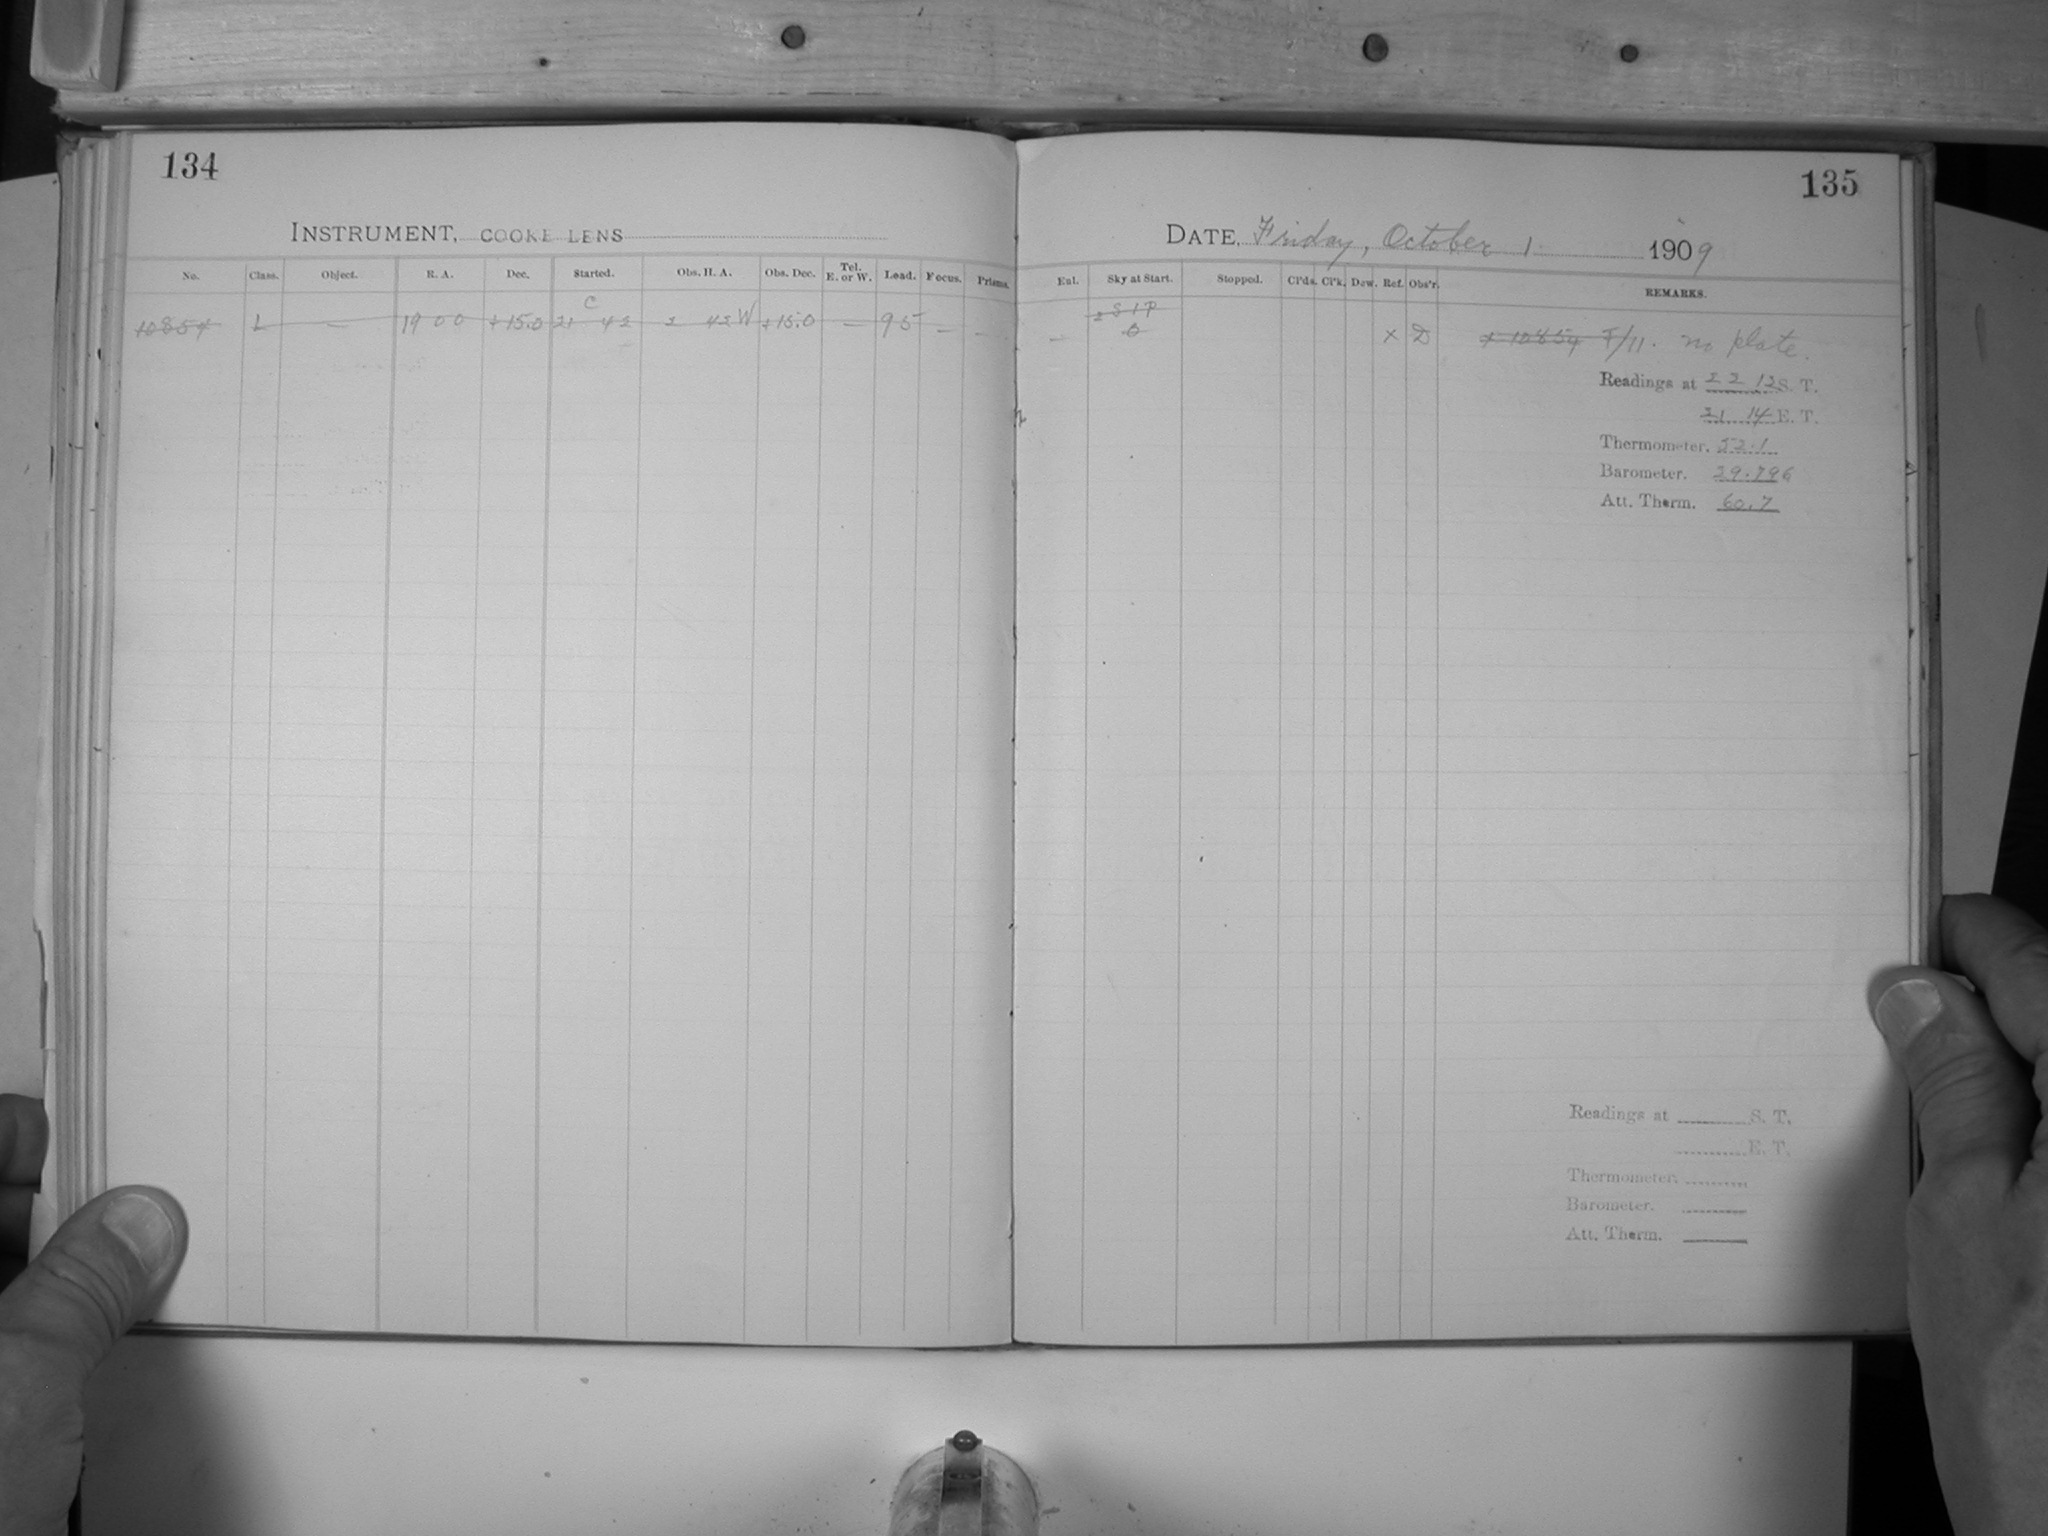 134
INSTRUMENT, COOKE LENS
No. Class. Object. R. A. Dec. Started. Obs. H. A. Obs. Dec. Tel. E. or W. Load. Focus. Prisms.
C
10854 L — 19 00 +15.0 21 42 2 42 W +15.0 — 95 — —
135
DATE, Friday, October 1 1909
Eul. Sky at Start. Stopped. Cl'ds. Cl'k. Dew. Ref. Obs'r. REMARKS.
— 0 × D × 10854 F/11. no plate.
Readings at 22 12 S. T.
21 14 E. T.
Thermometer. 52.1
Barometer. 29.796
Att. Therm. 60.7
Readings at S. T.
E. T.
Thermometer.
Barometer.
Att. Therm.